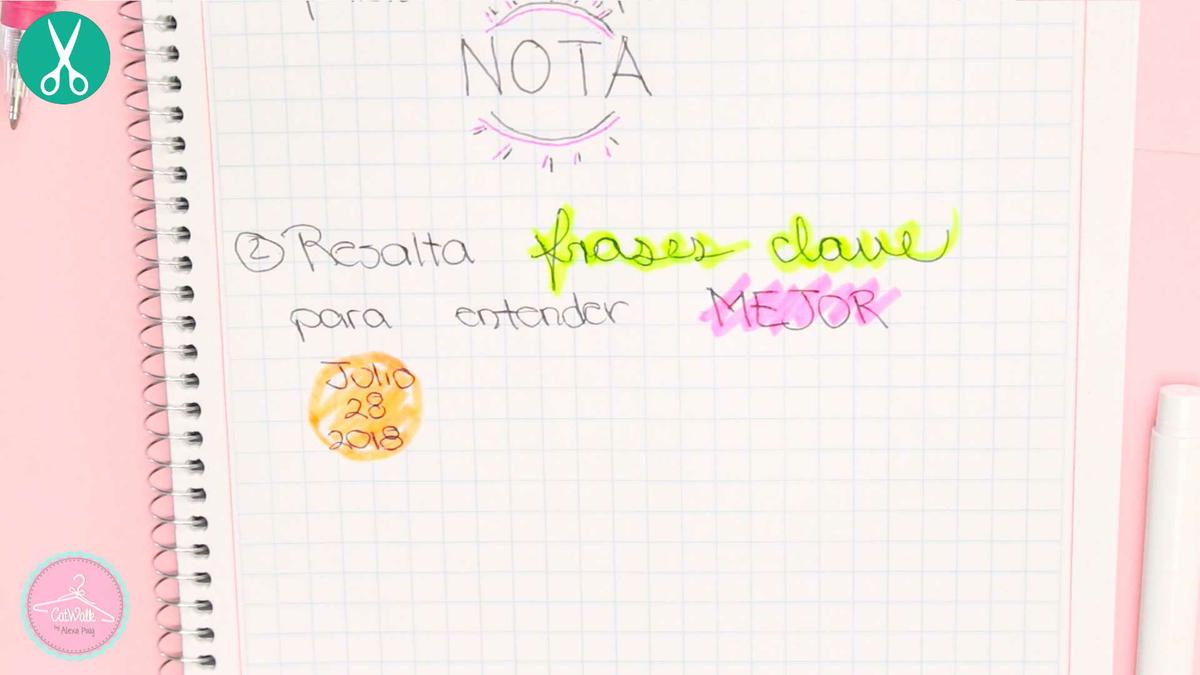 NOTA
② Resalta frases clave
para entender MEJOR
Julio
28
2018
CatWalk
by Alexa Puig